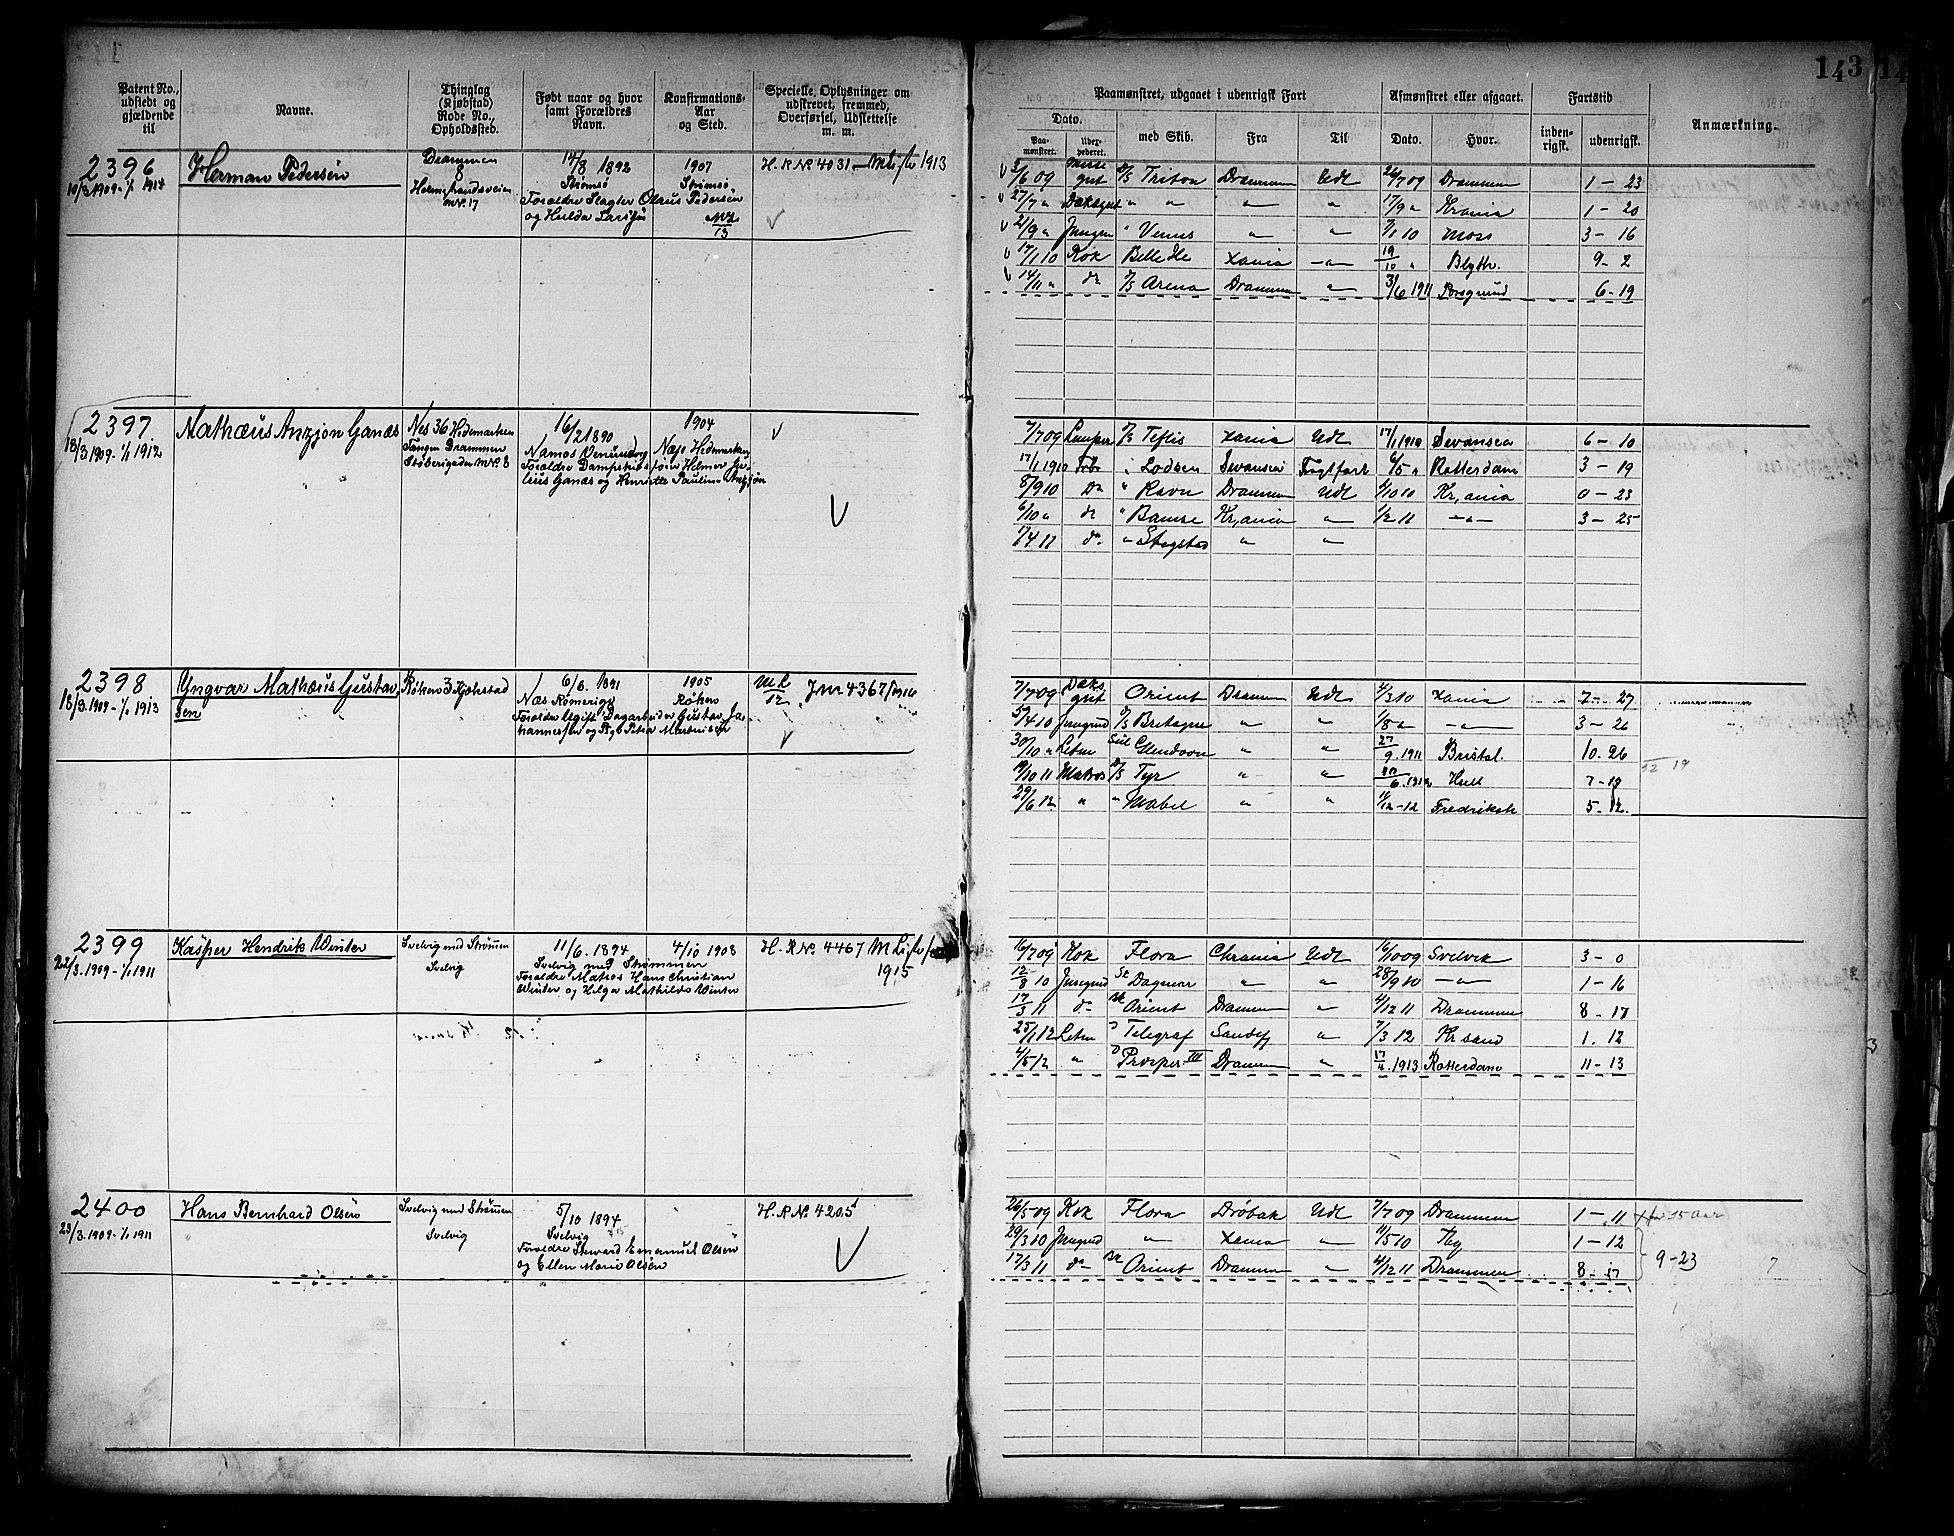 143
Patent No., udstedt og gjældende til
Navne.
Thinglag (Kjøbstad) Rode No., Opholdssted.
Født naar og hvor samt Forældres Navn.
Konfirmations-Aar og Sted.
Specielle Oplysninger om udskrevet, fremmed, Overførsel, Udslettelse m. m.
Paamønstret, udgaaet i udenrigsk Fart
Afmønstret eller afgaaet.
Fartstid
Anmærkning.
Dato.
Paamønstret.
med Skib.
Fra
Til
Dato.
Hvor.
indenrigsk.
udenrigsk.
2396
10/3 1909 - 1/1 1914
Herman Pedersen
Drammen
8
Holmestrandsveien
No. 17
14/8 1892
Strømsø
Forældre Slagter Olaus Pedersen
og Hulda
1907
Strømsø
H.R.No 4031 1913
2/6 09 Messegut D/S Triton Drammen Udl 26/7 09 Drammen 1 - 23
27/7 " Dæksgut " " " " 17/9 " Krania 1 - 20
21/9 " Jungm " Venus " " 7/1 10 Moss 3 - 16
17/1 10 Kok Belle Ile Xania -"- 19/10 " Blyth. 9 - 2
14/11 " do D/S Arena Drammen " 3/6 1911 6 - 19
2397
18/3 1909 - 1/1 1912
Mathæus Anzjøn Ganæs
Nes 36 Hedemarken
Tangen Drammen
16/2 1890
1904
Næs Hedemarken
Forældre Dampskibsfører Helmer Julius Ganæs og Henriette Pauline Anzjøn
7/7 09 Lemper D/S Teflis Xania Udl 17/1 1910 Swansea 6 - 10
17/1 1910 " Lodsen Swansea Fragtfart 6/5 " Rotterdam 3 - 19
8/9 10 do " Ravn Drammen Udl 6/10 10 Kr,ania 0 - 23
6/10 " do " Bamse Kr,ania " 1/2 11 -"- 3 - 25
17/4 11 do " Skogstad " "
2398
18/3 1909 - 1/1 1913
Yngvar Mathæus Gustavsen
Røken 3 Kjøkstad
6/8 1891
Næs Romerige
Forældre ugift Dagarbeider Gustav Johannessen og Pige Petra Martinisen
1905
Røken
M.R. 12 J.No 4367/1916
7/7 09 Dæksgut Orient Drammen Udl 4/3 10 Xania 7 - 27
5/4 10 Jungmd D/S Bretagne " " 1/8 " -"- 3 - 26
30/10 " Letm Skl Glendoon " " 27/9 1911 Bristol. 10 - 26
19/10 11 Matros D/S Tyr " " 6. 1912 Hull 7 - 19
29/6 12. " " Mabel " " 11/12 - 12 Fredrikst 5 - 12.
2399
22/3. 1909 - 1/1 1911
Kasper Hendrik Winter
Svelvig med Strømmen
Svelvig
11/6. 1894
Svelvig med Strømmen
Forældre Matros Hans Christian
Winter og Helga Mathilde Winter
4/10 1908
H.R.No 4467
1915
16/7 09 Kok Flora Chrania Udl 16/10 09 Svelvik 3 - 0
12/8 10 Jungmd Sk Dagmar " " 28/9 10 -"- 1 - 16
17/3 11 do Bk Orient Drammen " 4/12 11 Drammen 8 - 17
25/1 12 Letm D Telegraf Sandefj " 7/3 12 Kr sand 1. 12
4/5 12 " D Prosper III Drammen " 17/4. 1913 Rotterdam 11 - 13
2400
23/3. 1909 - 1/1 1911
Hans Bernhard Olsen
Svelvig med Strømmen
Svelvig
5/10 1894
Svelvig
Forældre Emanuel Olsen
og Ellen Marie Olsen
H.R.No 4205
26/5 09 Kok Flora Drøbak Udl 7/7 09 Drammen 1 - 11
29/3 10 Jungmd " Xania " 11/5 10 1 - 12
17/3 11 do Bk Orient Drammen " 4/12 11 Drammen 8 - 17
9-23